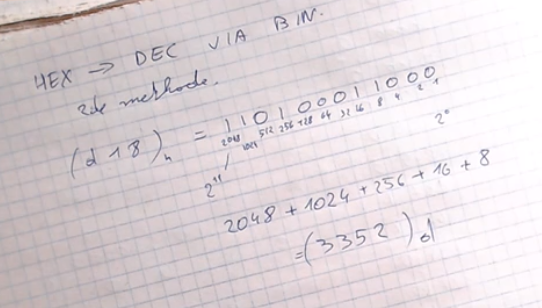 HEX → DEC VIA BIN.
2de methode.
(d18)h = 110100011000
2048 1024 512 256 128 64 32 16 8 4 2 1
2¹¹ 2⁰
2048 + 1024 + 256 + 16 + 8
= (3352)d